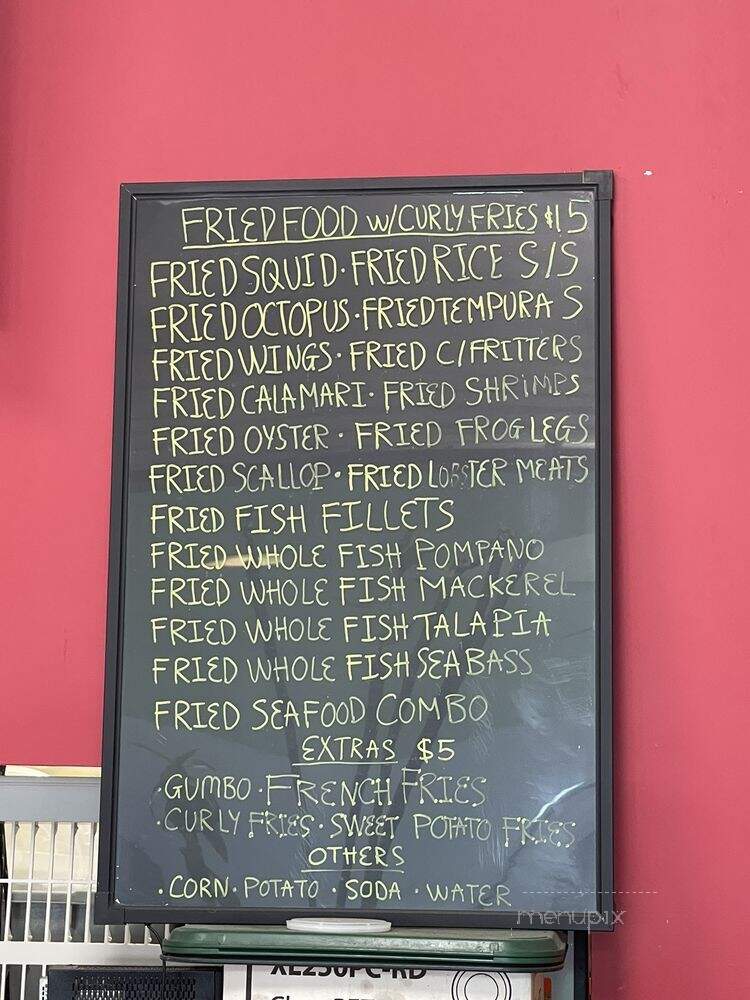 FRIED FOOD W/CURLY FRIES $15
FRIED SQUID · FRIED RICE S/S
FRIED OCTOPUS · FRIED TEMPURA S
FRIED WINGS · FRIED C/FRITTERS
FRIED CALAMARI · FRIED SHRIMPS
FRIED OYSTER · FRIED FROG LEGS
FRIED SCALLOP · FRIED LOBSTER MEATS
FRIED FISH FILLETS
FRIED WHOLE FISH POMPANO
FRIED WHOLE FISH MACKEREL
FRIED WHOLE FISH TALAPIA
FRIED WHOLE FISH SEABASS
FRIED SEAFOOD COMBO
EXTRAS $5
· GUMBO · FRENCH FRIES
· CURLY FRIES · SWEET POTATO FRIES
OTHERS
· CORN · POTATO · SODA · WATER
menupix